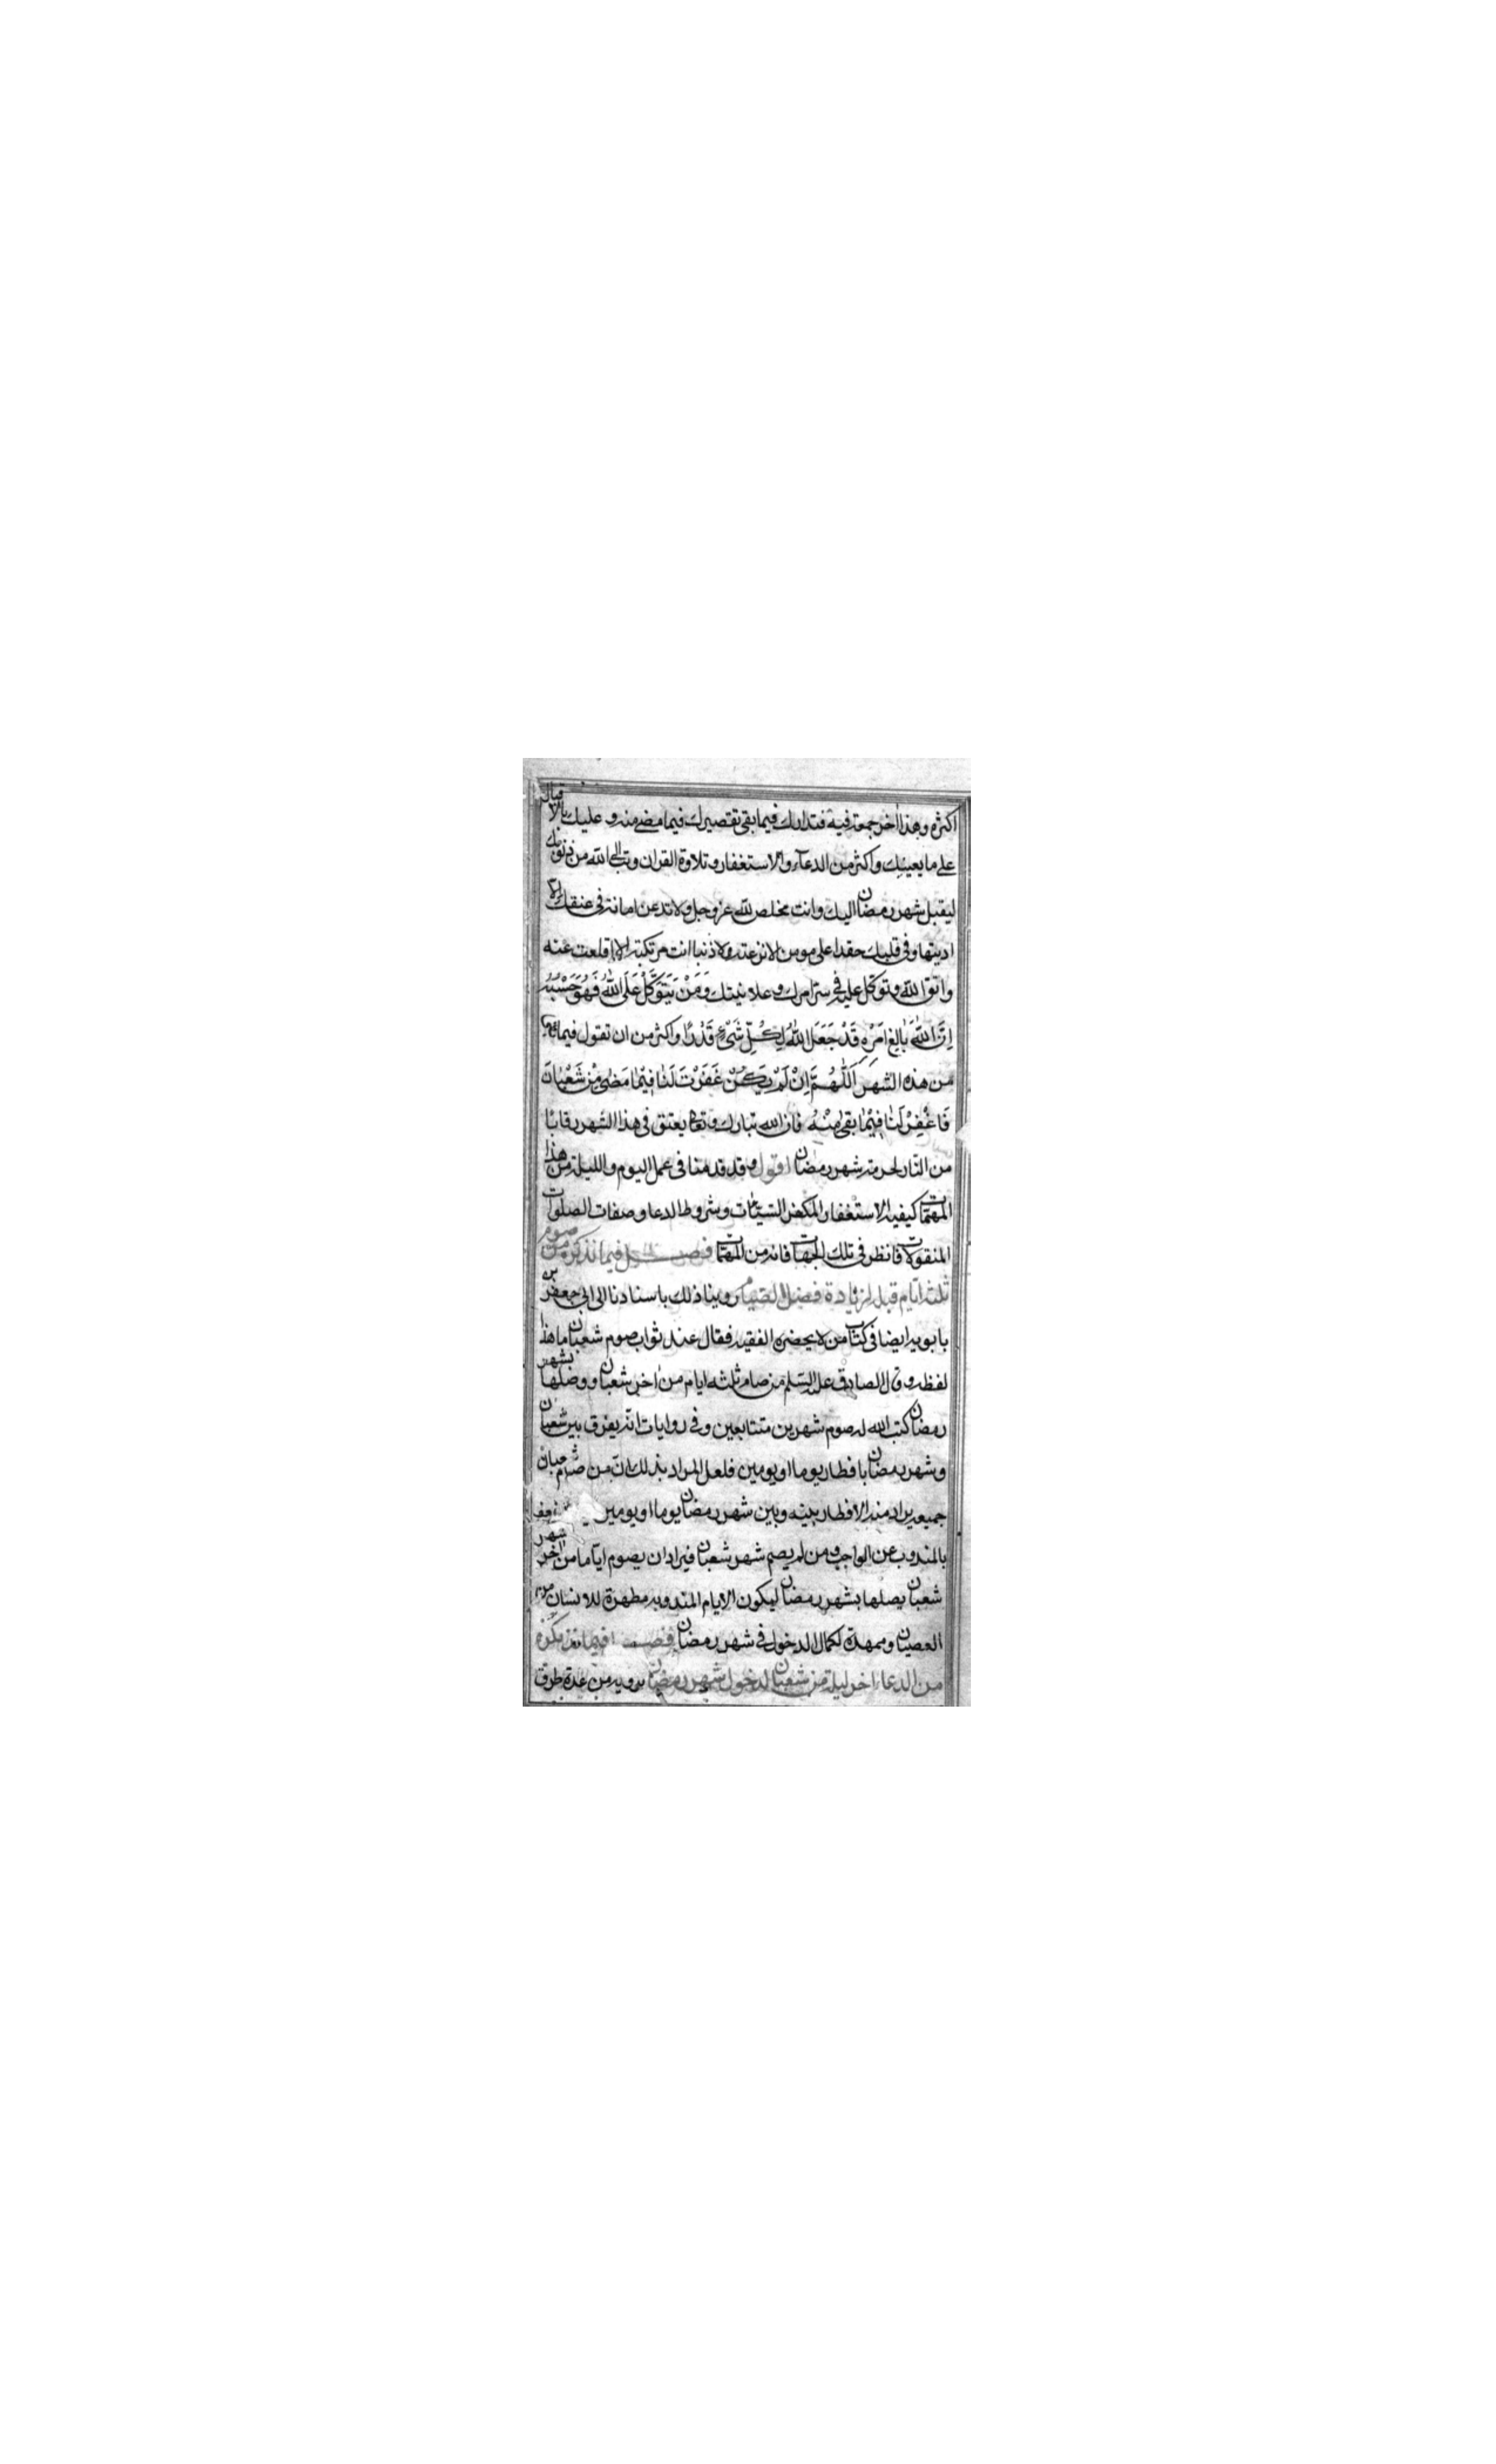 اكثره وهذا اخر جمعة فيه فتدارك فيما بقى تقصيرك فيما مضى منه وعليك بالاقبال
على ما يعينك واكثر من الدعاء والاستغفار وتلاوة القران وتب الى الله من ذنوبك
ليقبل شهر رمضان اليك وانت مخلص لله عز وجل ولا تدعن امانة فى عنقك الا
اديتها وفى قلبك حقدا على مومن الا نزعته ولا ذنبا انت مرتكبه الا اقلعت عنه
واتق الله وتوكل عليه فى سر امرك وعلانيتك وَمَنْ يَتَوَكَّلْ عَلَى اللهِ فَهُوَ حَسْبُهُ
اِنَّ اللهَ بَالِغُ اَمْرِهِ قَدْ جَعَلَ اللهُ لِكُلِّ شَىْءٍ قَدْرًا واكثر من ان تقول فيما بقى
من هذه الشهر اَللّٰهُمَّ اِنْ لَمْ يَكُنْ غَفَرْتَ لَنَا فِيْمَا مَضٰى مِنْ شَعْبَانَ
فَاغْفِرْ لَنَا فِيْمَا بَقِىَ مِنْهُ فان الله تبارك وتعا يعتق فى هذا الشهر رقابا
من النار لحرمة شهر رمضان اقول وقد قدمنا فى عمل اليوم والليلة من هذا
المهمات كيفية الاستغفار المكفر السيئات وشروط الدعا وصفات الصلوات
المنقولات فانظر فى تلك الجهات فانه من المهمات فصل فيما نذكره من صوم
ثلثة ايام قبله لزيادة فضل الصيام روينا ذلك باسنادنا الى ابى جعفر بن
بابويه ايضا فى كتاب من لا يحضره الفقيه فقال عند ثواب صوم شعبان ما هذا
لفظه وقال الصادق عليه السلم من صام ثلثه ايام من اخر شعبان ووصلها بشهر
رمضان كتب الله له صوم شهرين متتابعين وفى روايات انه يفرق بين شعبان
وشهر رمضان بافطار يوما او يومين فلعل المراد بذلك ان من صام
جميعه يراد منه الافطار بينه وبين شهر رمضان يوما او يومين
بالمندوب عن الواجب ومن لم يصم شهر شعبان فيراد ان يصوم اياما من اخر شهر
شعبان يصلها بشهر رمضان ليكون الايام المندوبه مطهرة للانسان من
العصيان وممهدة لكمال الدخول فى شهر رمضان فصل فيما نذكره
من الدعا اخر ليلة من شعبان لدخول شهر رمضان نرويه من عدة طرق